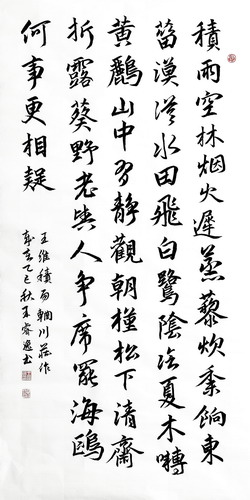 積雨空林烟火遲蒸藜炊黍餉東
菑漠漠水田飛白鷺陰陰夏木囀
黃鸝山中習靜觀朝槿松下清齋
折露葵野老與人爭席罷海鷗
何事更相疑
王維積雨輞川莊作
歲在乙巳秋王睿逸书